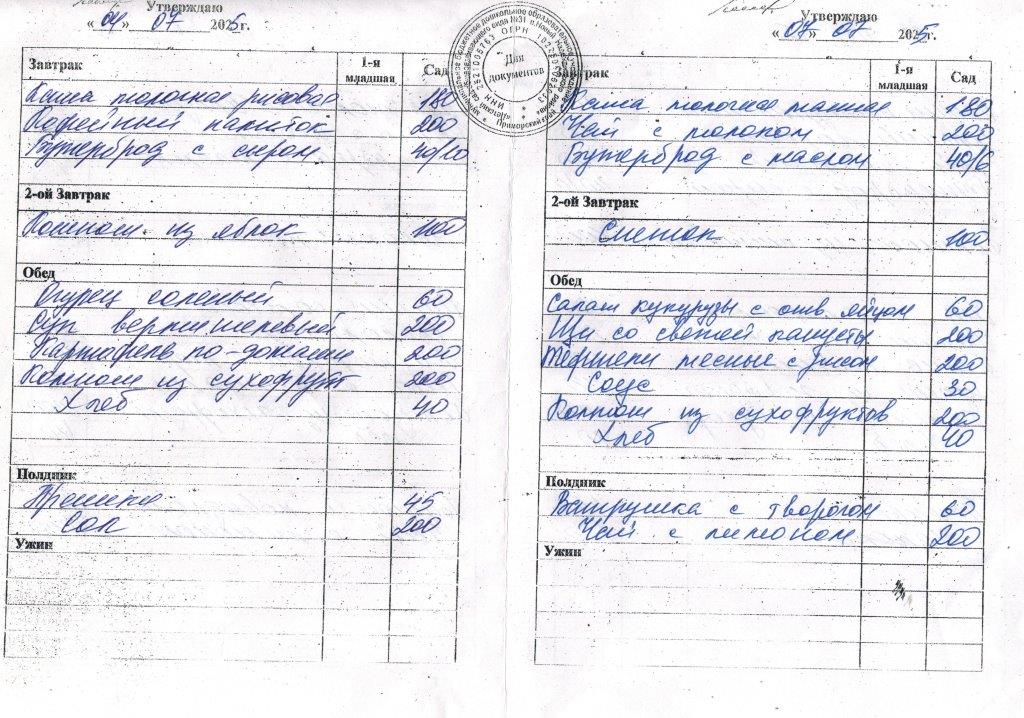 Утверждаю
«04» 07 2025г.
Завтрак 1-я младшая Сад
Каша молочная рисовая 180
Кофейный напиток 200
Бутерброд с сыром 40/10
2-ой Завтрак
Компот из яблок 100
Обед
Огурец соленый 60
Суп вермишелевый 200
Картофель по-домашн 200
Компот из сухофрукт 200
Хлеб 40
Полдник
45
Сок 200
Ужин
Для документов
Утверждаю
«07» 07 2025г.
Завтрак 1-я младшая Сад
Каша молочная манная 180
Чай с молоком 200
Бутерброд с маслом 40/6
2-ой Завтрак
Снежок 100
Обед
Салат кукурузы с отв. яйцом 60
Щи со свежей капусты 200
Тефтели мясные с рисом 200
Соус 30
Компот из сухофруктов 200
Хлеб 40
Полдник
Ватрушка с творогом 60
Чай с лимоном 200
Ужин